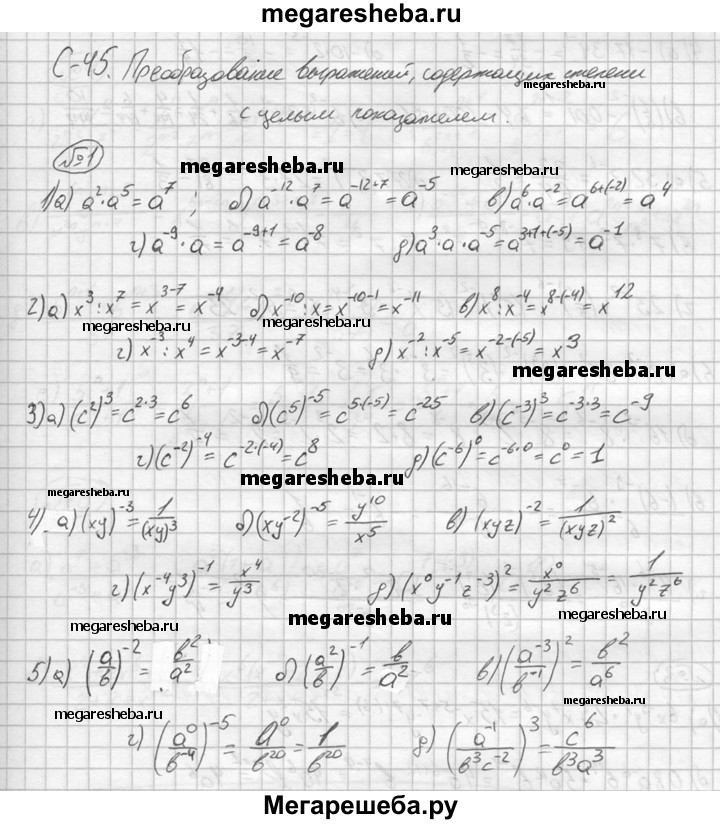 megaresheba.ru
С-45. Преобразование выражений, содержащих степени
megaresheba.ru
с целым показателем.
№1
megaresheba.ru
megaresheba.ru
1)а) a²·a⁵=a⁷; б) a⁻¹²·a⁷=a⁻¹²⁺⁷=a⁻⁵ в) a⁶·a⁻²=a⁶⁺⁽⁻²⁾=a⁴
г) a⁻⁹·a=a⁻⁹⁺¹=a⁻⁸ д) a³·a·a⁻⁵=a³⁺¹⁺⁽⁻⁵⁾=a⁻¹
2)а) x³:x⁷=x³⁻⁷=x⁻⁴ б) x⁻¹⁰:x=x⁻¹⁰⁻¹=x⁻¹¹ в) x⁸:x⁻⁴=x⁸⁻⁽⁻⁴⁾=x¹²
megaresheba.ru megaresheba.ru
г) x⁻³:x⁴=x⁻³⁻⁴=x⁻⁷ д) x⁻²:x⁻⁵=x⁻²⁻⁽⁻⁵⁾=x³
megaresheba.ru
3)а) (c²)³=c²·³=c⁶ б) (c⁵)⁻⁵=c⁵·⁽⁻⁵⁾=c⁻²⁵ в) (c⁻³)³=c⁻³·³=c⁻⁹
г) (c⁻²)⁻⁴=c⁻²·⁽⁻⁴⁾=c⁸ д) (c⁻⁶)⁰=c⁻⁶·⁰=c⁰=1
megaresheba.ru
megaresheba.ru
4) а) (xy)⁻³=1/(xy)³ б) (xy⁻²)⁻⁵=y¹⁰/x⁵ в) (xyz)⁻²=1/(xyz)²
г) (x⁻⁴y³)⁻¹=x⁴/y³ д) (x⁰y⁻¹z⁻³)²=x⁰/y²z⁶=1/y²z⁶
megaresheba.ru
megaresheba.ru
megaresheba.ru
5)а) (a/b)⁻²=b²/a² б) (a²/b)⁻¹=b/a² в) (a⁻³/b⁻¹)²=b²/a⁶
megaresheba.ru
megaresheba.ru
г) (a⁰/b⁻⁴)⁻⁵=a⁰/b²⁰=1/b²⁰ д) (a⁻¹/b³c⁻²)³=c⁶/b³a³
Мегарешеба.ру